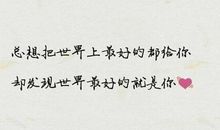 总想把世界上最好的都给你
却发现世界最好的就是你